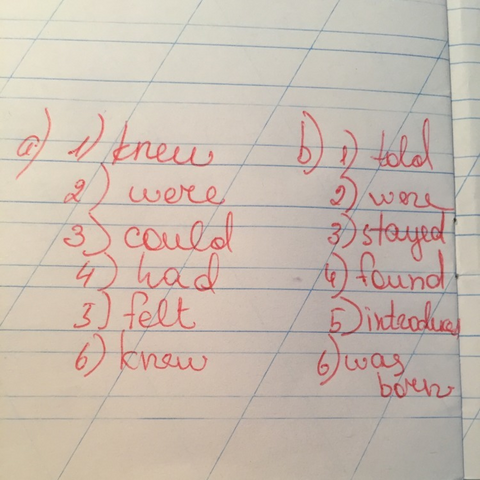 a) 1) knew
2) were
3) could
4) had
5) felt
6) knew
b) 1) told
2) were
3) stayed
4) found
5)
6) was
born